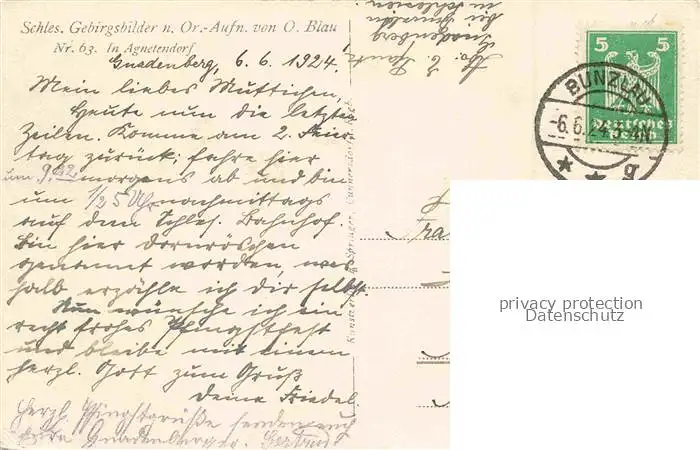 Schles. Gebirgsbilder n. Or.-Aufn. von O. Blau
Nr. 63. In Agnetendorf
Gnadenberg, 6. 6. 1924.
Mein liebes Muttichen,
Heute nun die letzten
Zeilen. Komme am 2. Feier-
tag zurück; fahre hier
um 9.42 morgens ab und bin
um 1/2 5 Uhr nachmittags
auf dem Schles. Bahnhof.
Bin hier Dornröschen
genannt worden, wes-
halb erzähle ich dir selbst.
Nun wünsche ich ein
recht frohes Pfingstfest
und bleibe mit einem
herzl. Gott zum Gruß
deine Friedel.
Herzl. Pfingstgrüße senden euch
Gnadenberger. Gertrud
Gnadenberg
bei Bunzlau
in Schlesien
5 5
Deutsches Reich
BUNZLAU
-6.6.24.3-4N.
* * * g
Fra
privacy protection
Datenschutz